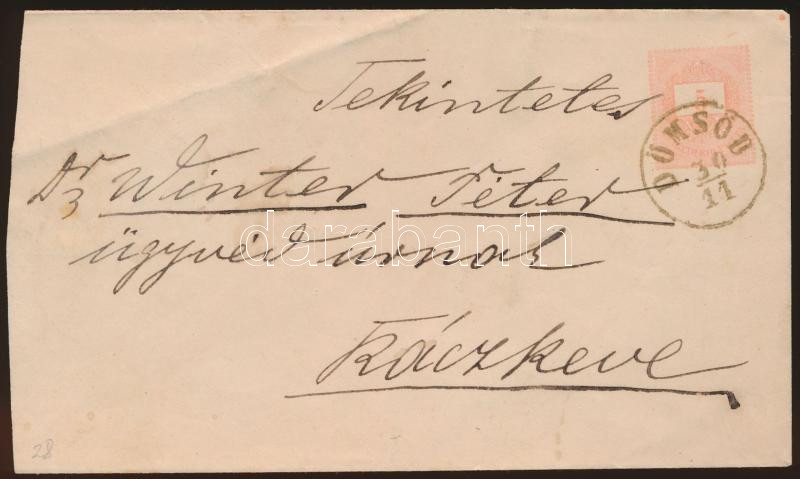 Tekintetes
Dr Winter Péter
ügyvéd úrnak
Ráczkeve
5
DÖMSÖD
30
11
darabanth
28